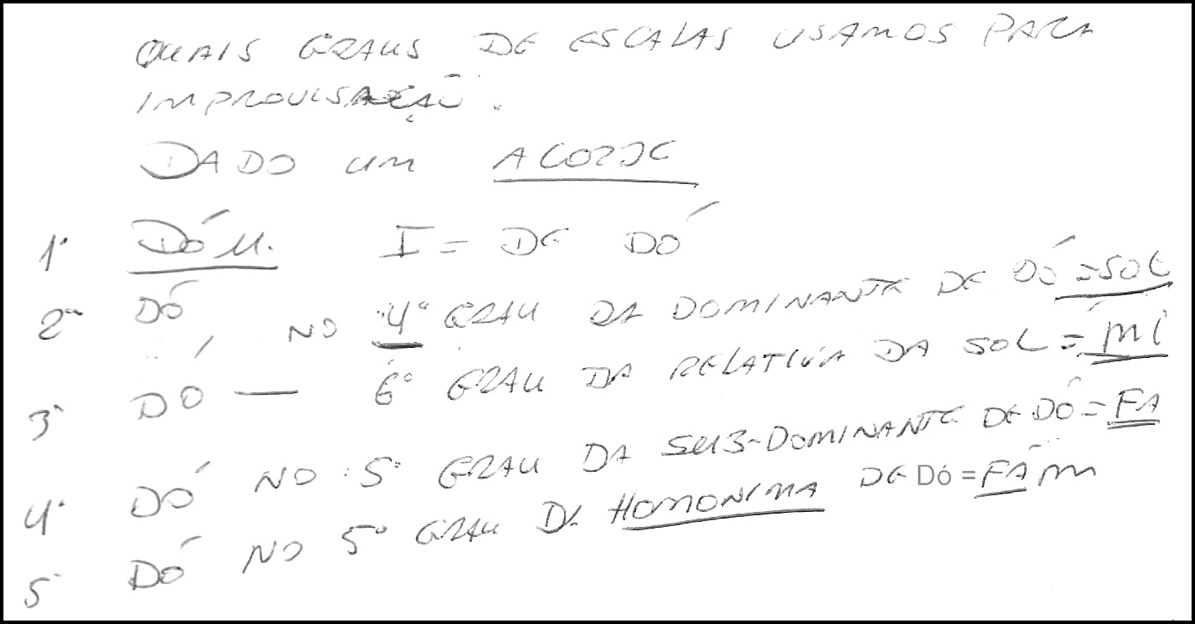 QUAIS GRAUS DE ESCALAS USAMOS PARA
IMPROVISAÇÃO.
DADO UM ACORDE
1º DÓ M. I = DE DÓ
2º DÓ NO 4º GRAU DA DOMINANTE DE DÓ = SOL
3º DÓ — 6º GRAU DA RELATIVA DA SOL = MI
4º DÓ NO 5º GRAU DA SUB-DOMINANTE DE DÓ = FA
5º DÓ NO 5º GRAU DA HOMONIMA DE DÓ = FÁ m